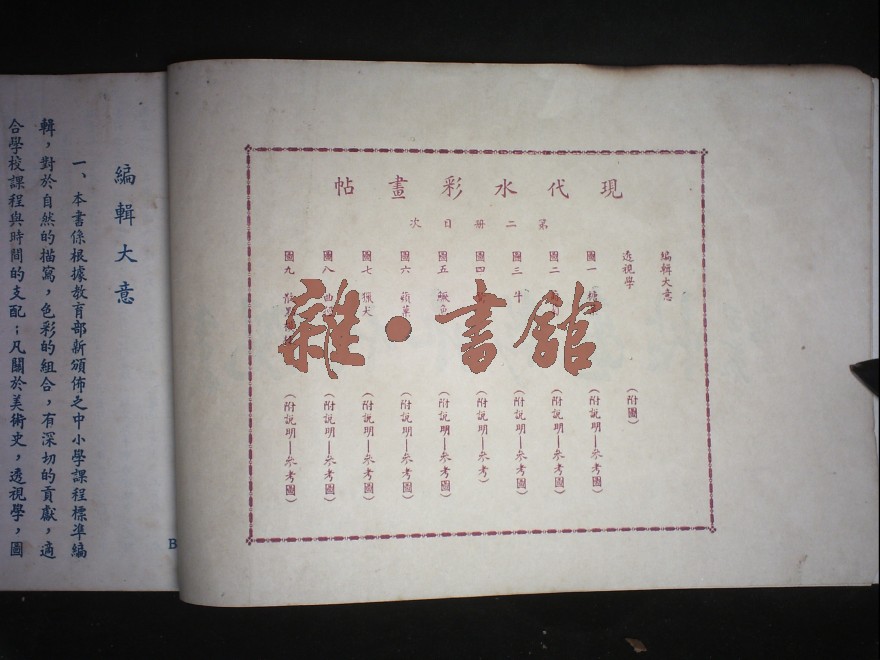 現代水彩畫帖
第二册目次
編輯大意
透視學 (附圖)
圖一 (附說明—參考圖)
圖二 (附說明—參考圖)
圖三 牛 (附說明—參考圖)
圖四 (附說明—參考)
圖五 (附說明—參考圖)
圖六 蘋菓 (附說明—參考圖)
圖七 獵犬 (附說明—參考圖)
圖八 (附說明—參考圖)
圖九 (附說明—參考圖)
雜·書館
編輯大意
一、本書係根據教育部新頒佈之中小學課程標準編
輯，對於自然的描寫，色彩的組合，有深切的貢獻，適
合學校課程與時間的支配；凡關於美術史，透視學，圖
B